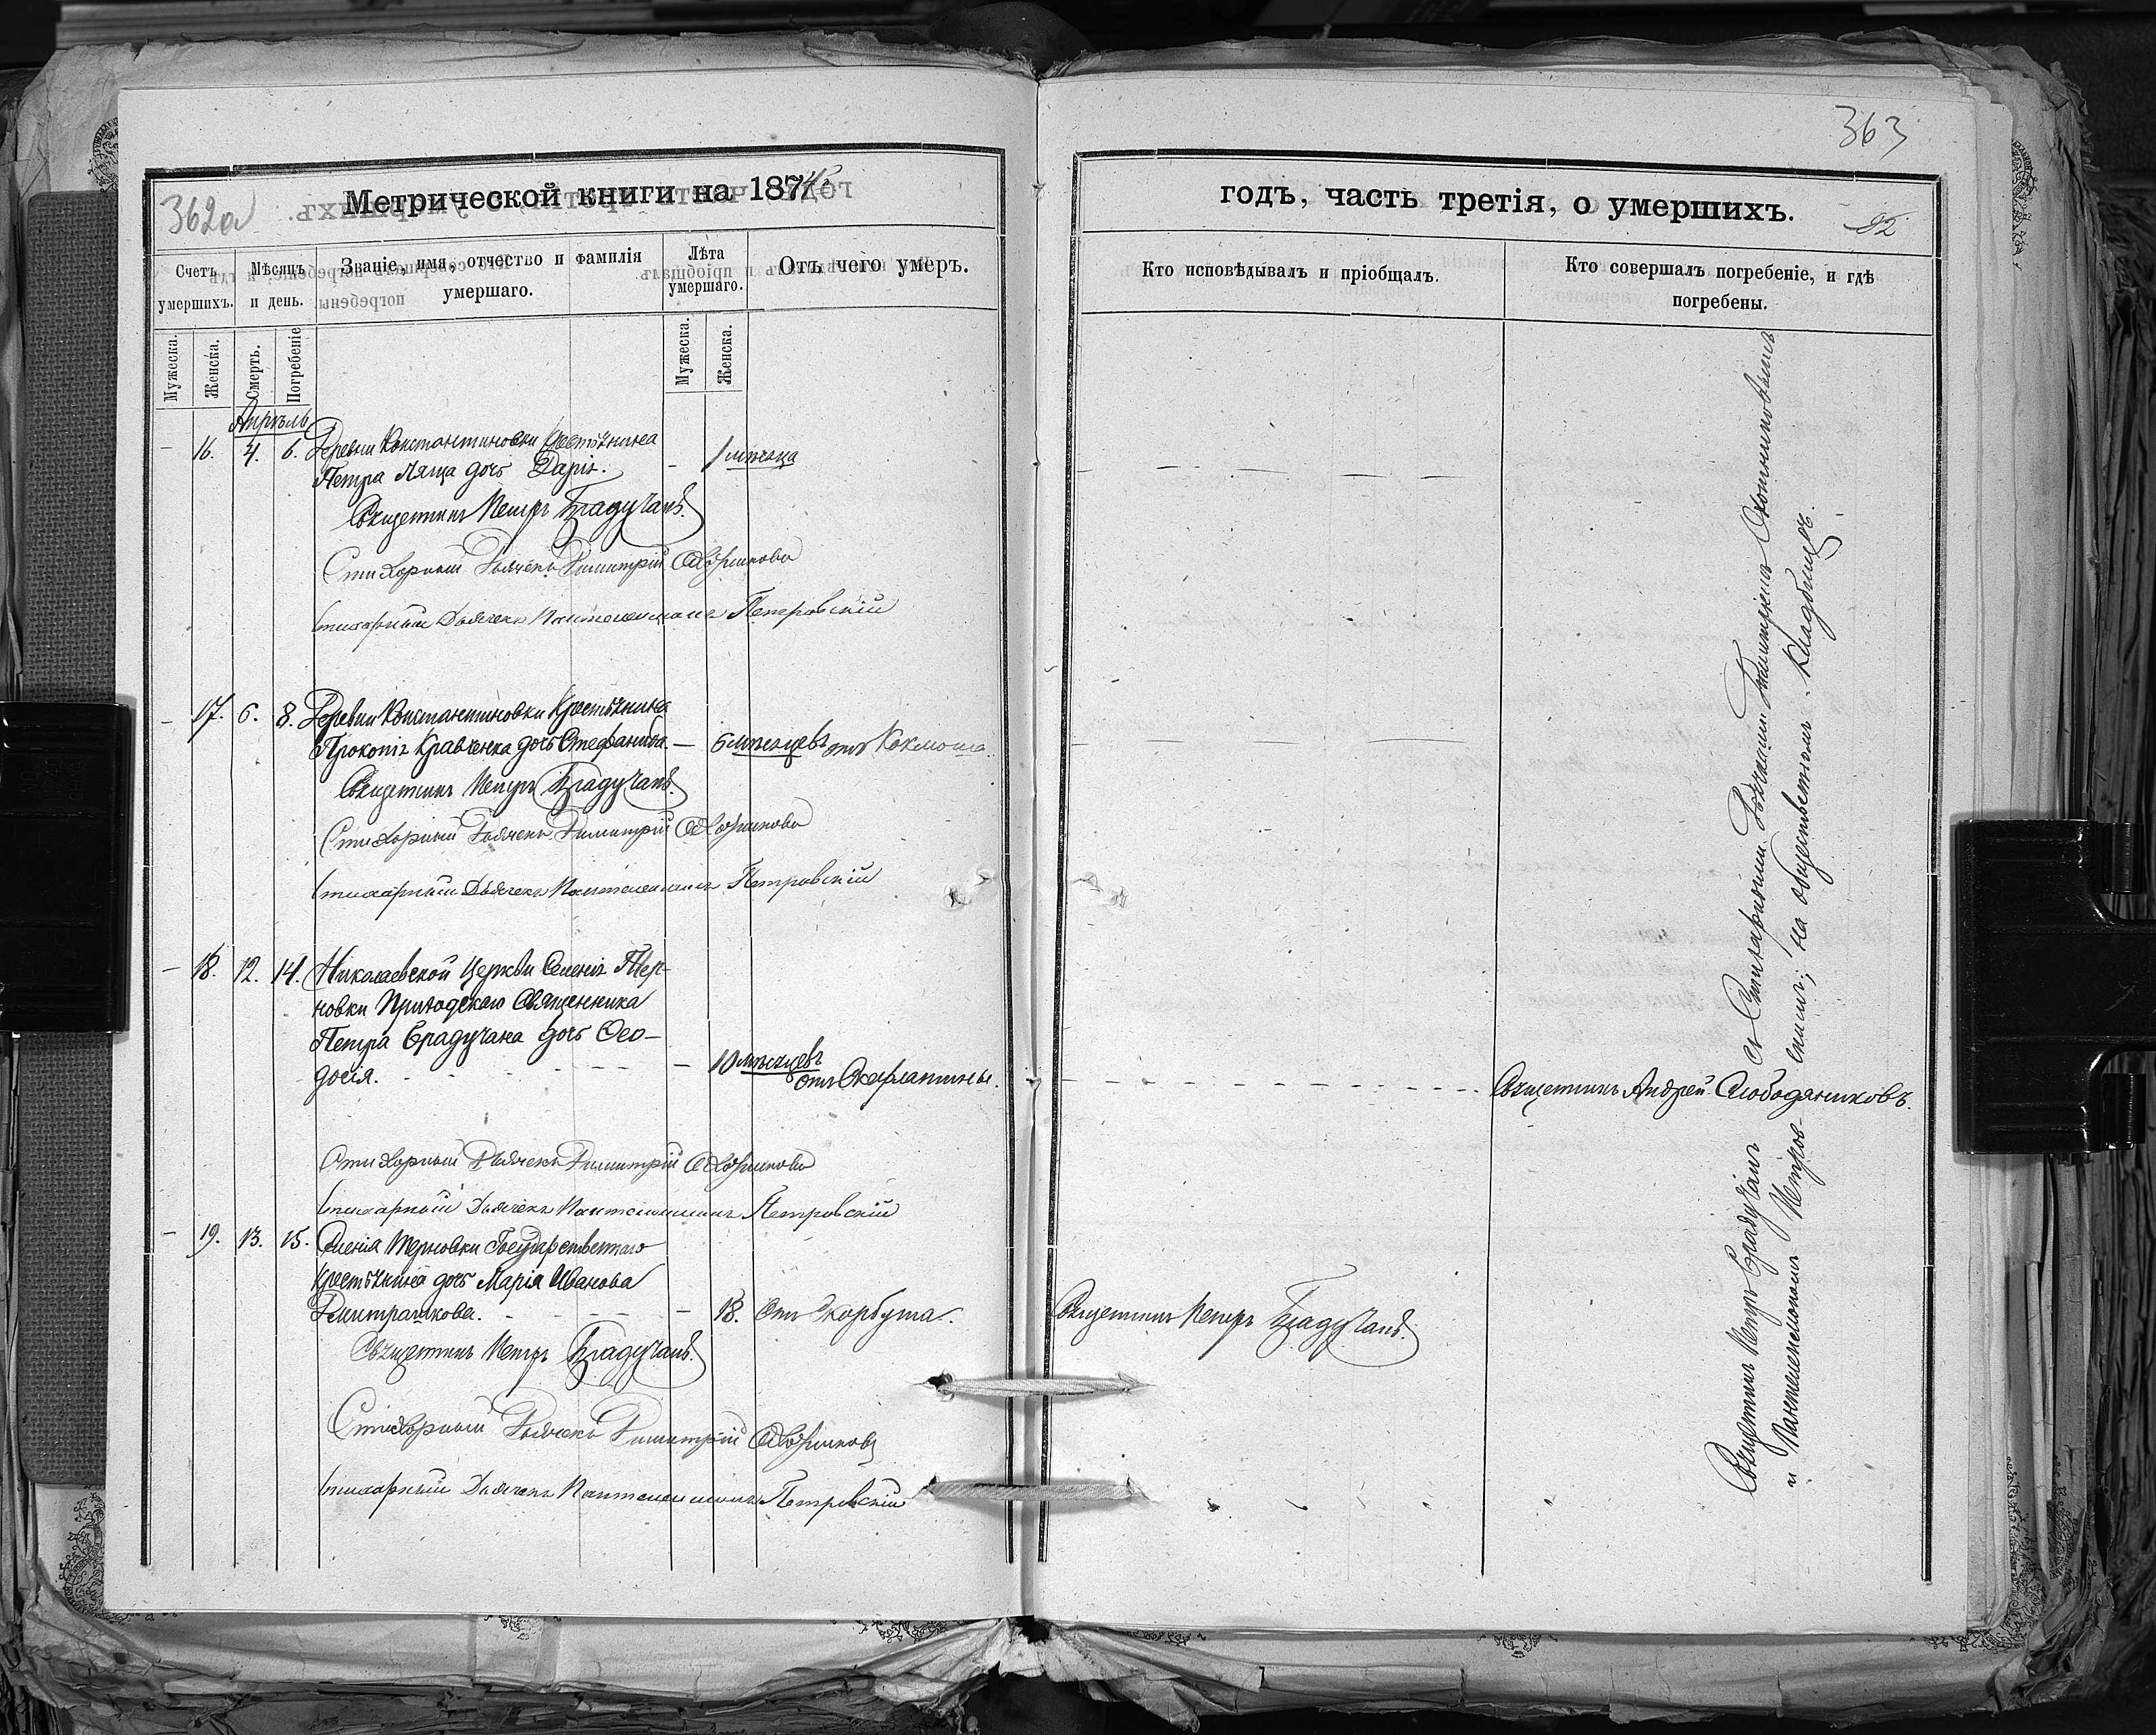 363
362об
Метрической книги на 1874
годъ, часть третія, о умершихъ.
92
Счетъ умершихъ.
Мѣсяцъ и день.
Званіе, имя, отчество и фамилія умершаго.
Лѣта умершаго.
Отъ чего умеръ.
Кто исповѣдывалъ и пріобщалъ.
Кто совершалъ погребеніе, и гдѣ погребены.
Мужеска.
Женска.
Смерть.
Погребеніе
Мужеска.
Женска.
Апрѣль
– 16. 4. 6. Деревни Константиновки Крестьянина
Петра Ляща дочь Дарія. – 1 мѣсяца
Священникъ Петръ Брадучанъ.
Стихарный Дьячекъ Димитрій
Стихарный Дьячекъ Пантелеимонъ Петровскій
– 17. 6. 8. Деревни Константиновки Крестьянина
Прокопія Кравченка дочь Стефанида. – 6 мѣсяцевъ отъ Коклюша.
Священникъ Петръ Брадучанъ.
Стихарный Дьячекъ Димитрій
Стихарный Дьячекъ Пантелеимонъ Петровскій
– 18. 12. 14. Николаевской Церкви Селенія Тер-
новки Приходскаго Священника
Петра Брадучана дочь Ѳео-
досія. – 10 мѣсяцевъ
отъ Скарлатины.
Священникъ Андрей Слободяниковъ.
Стихарный Дьячекъ Димитрій
Стихарный Дьячекъ Пантелеимонъ Петровскій
– 19. 13. 15. Селенія Терновки Государственнаго
Крестьянина дочь Марія Иванова
Димитрашкова. – 18. Отъ Скорбута.
Священникъ Петръ Брадучанъ.
Священникъ Петръ Брадучанъ.
Стихарный Дьячекъ Димитрій
Стихарный Дьячекъ Пантелеимонъ Петровскій
Священникъ Петръ Брадучанъ съ Стихарными Дьячками Димитріемъ
и Пантелеимономъ Петров-скимъ; на общественномъ Кладбищѣ.